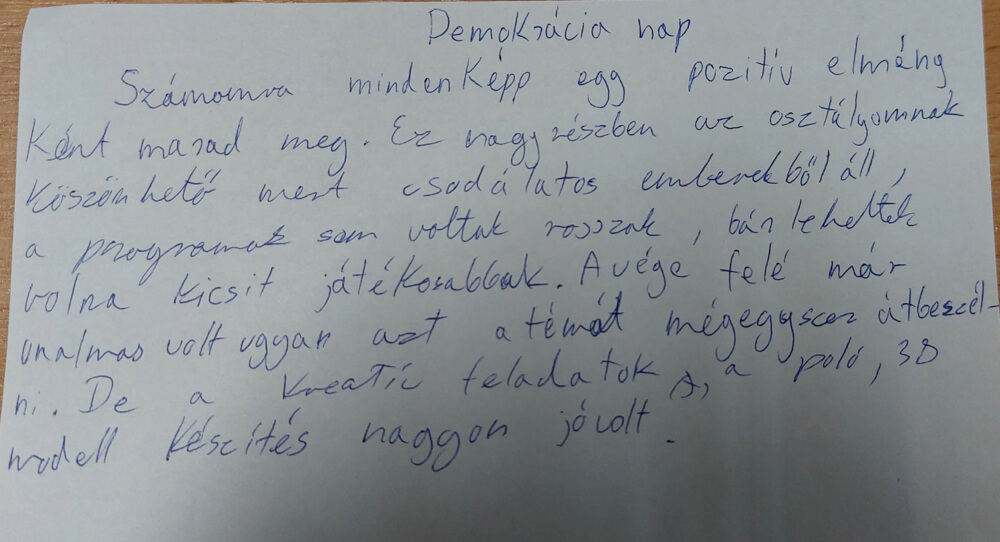 Demokrácia nap
Számomra mindenképp egy pozitív elmény
Ként marad meg. Ez nagyrészben az osztályomnak
Köszönhető mert csodálatos emberekből áll,
a programok sem voltak rosszak, bár lehettek
volna kicsit játékosabbak. A vége felé már
unalmas volt ugyan azt a témát mégegyszer átbeszél-
ni. De a kreatív feladatok, a poló, 3D
modell készítés naggon jóvolt.